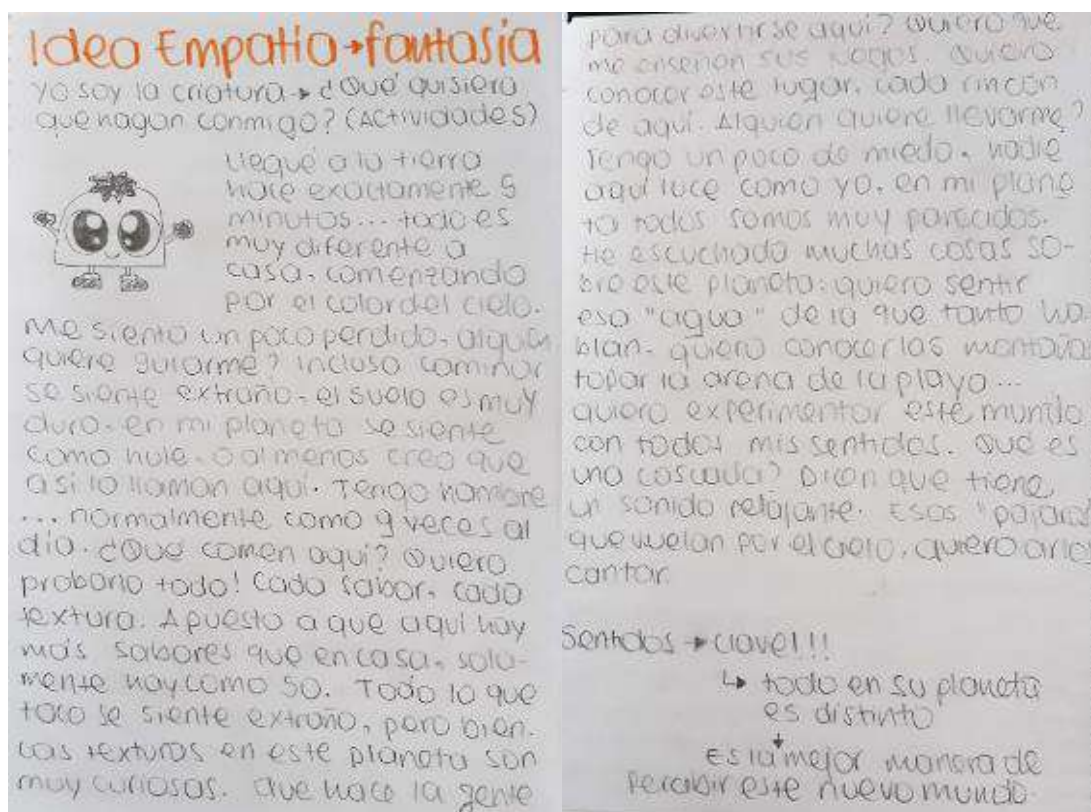 Idea Empatía→fantasía
Yo soy la criatura→ ¿Qué quisiera
que hagan conmigo? (Actividades)
Llegué a la tierra
hace exactamente 5
minutos... todo es
muy diferente a
casa, comenzando
por el color del cielo.
Me siento un poco perdido, alguien
quiere guiarme? Incluso caminar
se siente extraño, el suelo es muy
duro, en mi planeta se siente
como hule, o al menos creo que
así lo llaman aquí. Tengo hambre
... normalmente como 9 veces al
día. ¿Qué comen aquí? Quiero
probarlo todo! Cada sabor, cada
textura. Apuesto a que aquí hay
más sabores que en casa, sola-
mente hay como 50. Todo lo que
toco se siente extraño, pero bien.
Las texturas en este planeta son
muy curiosas. Que hace la gente
para divertirse aquí? Quiero que
me enseñen sus juegos. Quiero
conocer este lugar, cada rincón
de aquí. Alguien quiere llevarme?
Tengo un poco de miedo, nadie
aquí luce como yo, en mi plane
ta todos somos muy parecidos.
He escuchado muchas cosas so-
bre este planeta: quiero sentir
esa "agua" de la que tanto ha
blan, quiero conocer las montañas
topar la arena de la playa...
quiero experimentar este mundo
con todos mis sentidos. Qué es
una cascada? Dicen que tiene
un sonido relajante. Esos "pájaros
que vuelan por el cielo, quiero oirles
cantar.
Sentidos → clave!!!
↳ todo en su planeta
es distinto
↓
Es la mejor manera de
percibir este nuevo mundo.